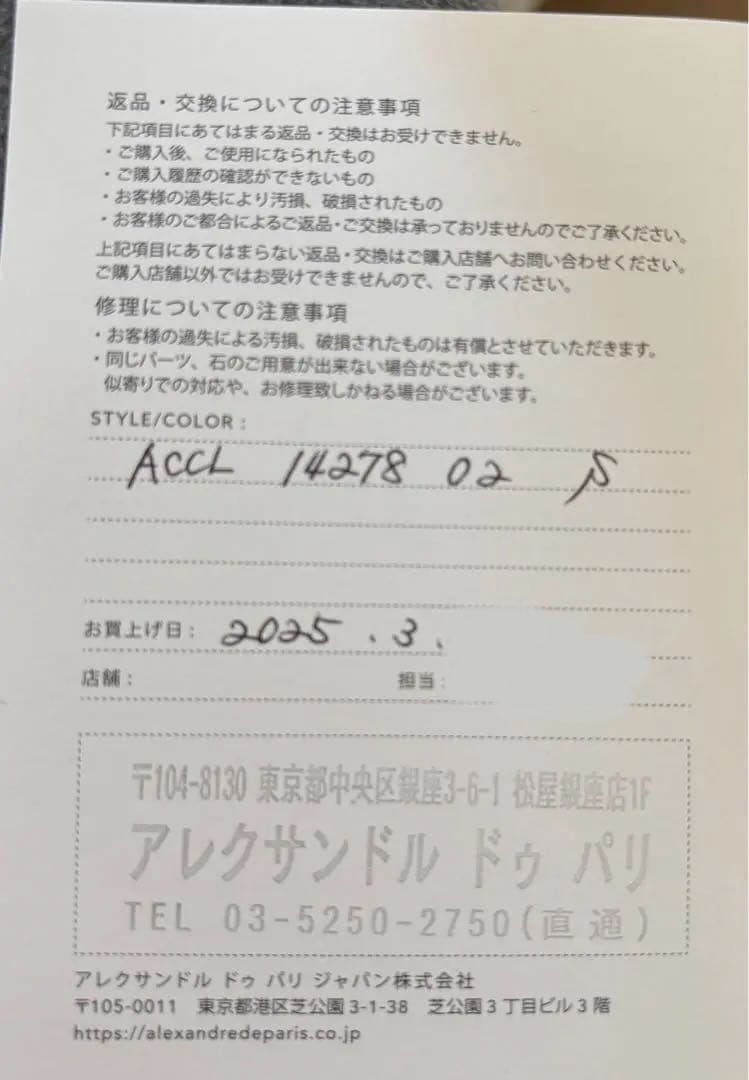 返品・交換についての注意事項
下記項目にあてはまる返品・交換はお受けできません。
・ご購入後、ご使用になられたもの
・ご購入履歴の確認ができないもの
・お客様の過失により汚損、破損されたもの
・お客様のご都合によるご返品・ご交換は承っておりませんのでご了承ください。
上記項目にあてはまらない返品・交換はご購入店舗へお問い合わせください。
ご購入店舗以外ではお受けできませんので、ご了承ください。
修理についての注意事項
・お客様の過失による汚損、破損されたものは有償とさせていただきます。
・同じパーツ、石のご用意が出来ない場合がございます。
似寄りでの対応や、お修理致しかねる場合がございます。
STYLE/COLOR :
ACCL 14278 02
お買上げ日 : 2025 . 3 .
店舗 : 担当 :
〒104-8130 東京都中央区銀座3-6-1 松屋銀座店1F
アレクサンドル ドゥ パリ
TEL 03-5250-2750(直通)
アレクサンドル ドゥ パリ ジャパン株式会社
〒105-0011 東京都港区芝公園3-1-38 芝公園3丁目ビル3階
https://alexandredeparis.co.jp